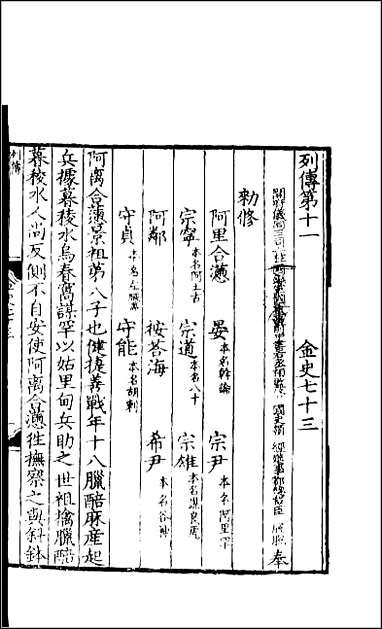 列傳第十一 金史七十三
開府儀同三司 國史領 經筵事都總裁臣 脫脫 奉
勑修
阿里合懣 晏本名斡論 宗尹本名阿里罕
宗寧本名阿土古 宗道本名八十 宗雄本名謀良虎
阿鄰 按荅海 希尹本名谷神
守貞本名左靨 守能本名胡剌
阿离合懣景祖第八子也健捷善戰年十八臘醅麻產起
兵據暮稜水烏春窩謀罕以姑里甸兵助之世祖擒臘醅
暮稜水人尚反側不自安使阿离合懣往撫察之與斜鉢